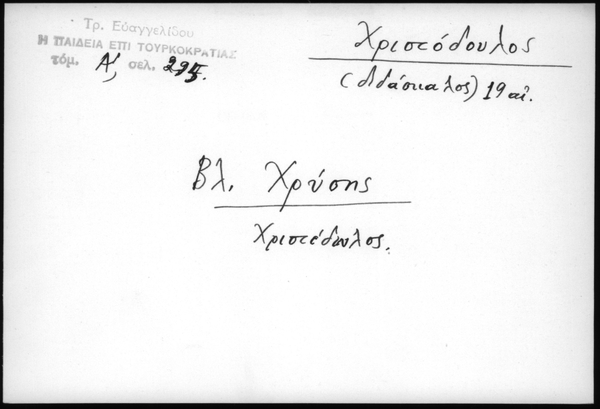 Τρ. Εὐαγγελίδου
Η ΠΑΙΔΕΙΑ ΕΠΙ ΤΟΥΡΚΟΚΡΑΤΙΑΣ
τόμ. Α', σελ. 295.
Χριστόδουλος
(διδάσκαλος) 19 αἰ.
Βλ. Χρύσης
Χριστόδουλος.